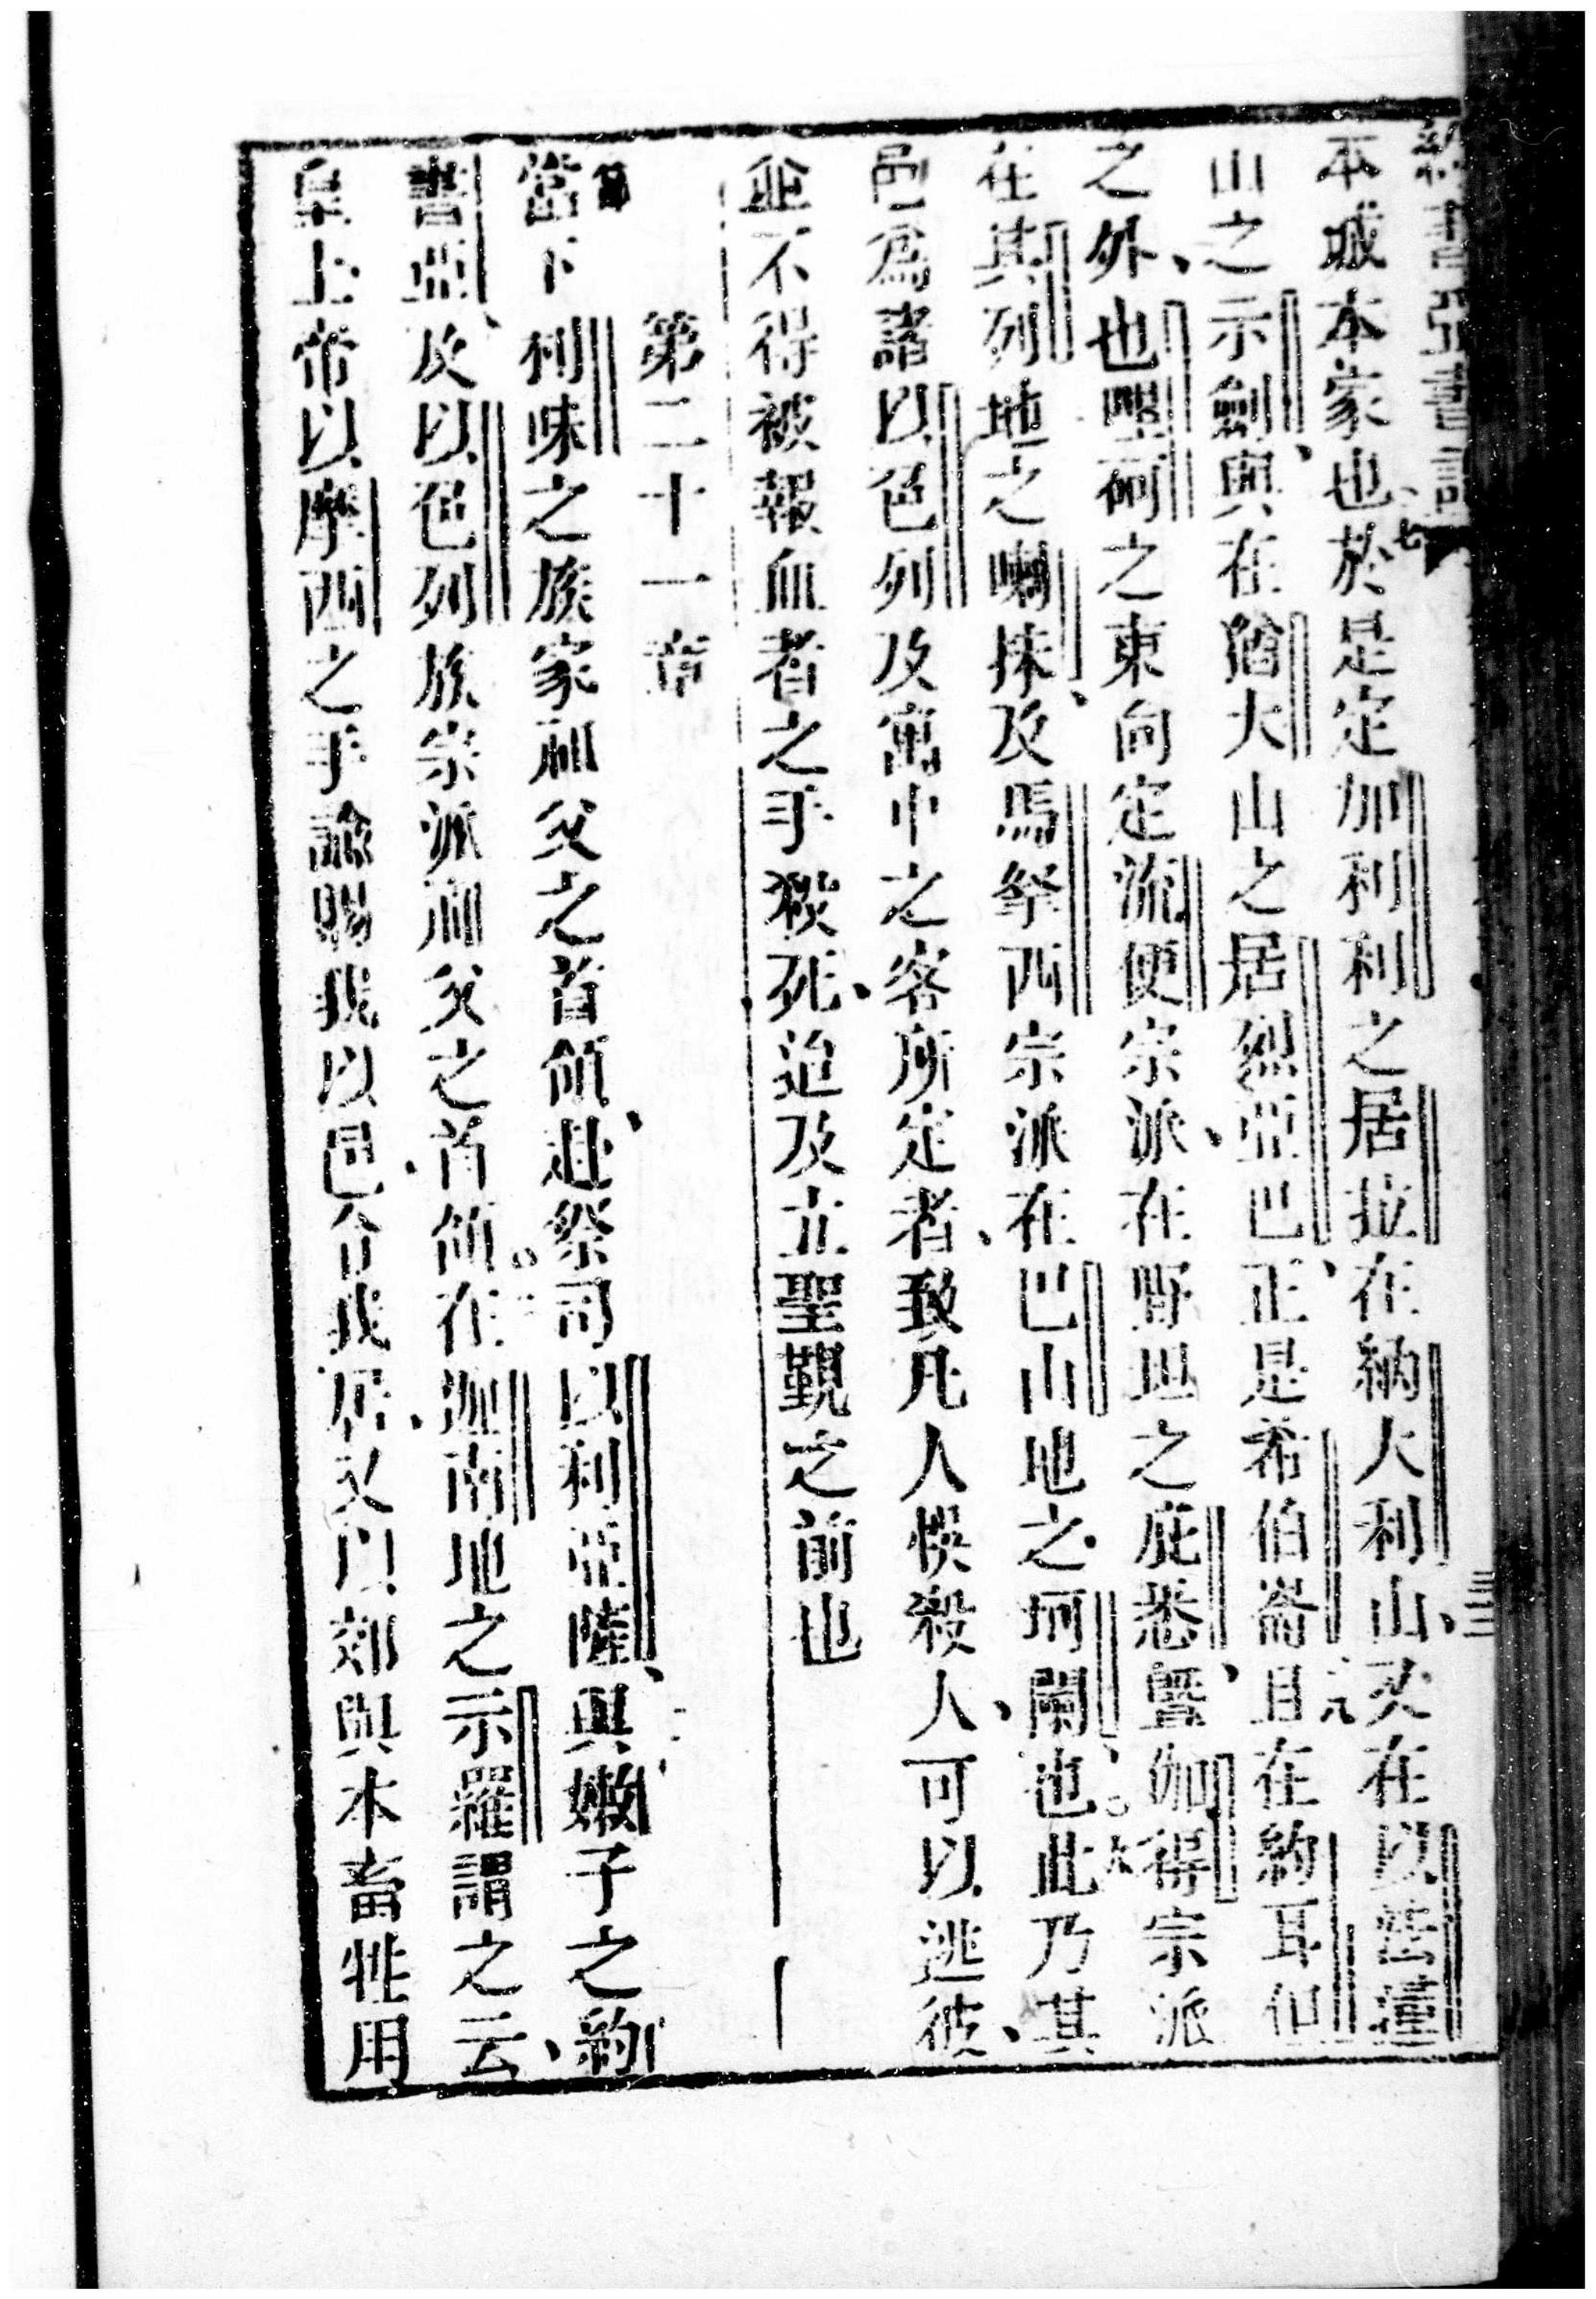 約書亞書記
三三
本城本家也於是定加利利之居拉在納大利山又在以法蓮
七
山之示劍與在猶大山之居烈亞巴正是希伯崙且在約耳但
八
之外也哩哥之東向定流便宗派在野坦之庇悉曁伽得宗派
在其列地之喇抹及馬拏西宗派在巴山地之坷闌也此乃其
九
邑爲諸以色列及寓中之客所定者致凡人悞殺人可以逃彼
並不得被報血者之手殺死迨及立聖覲之前也
第二十一章
節
當下利味之族家祖父之首領赴祭司以利亞薩與嫩子之約
書亞及以色列族宗派祖父之首領在迦南地之示羅謂之云
二
皇上帝以摩西之手諭賜我以邑合我居又以郊與本畜牲用